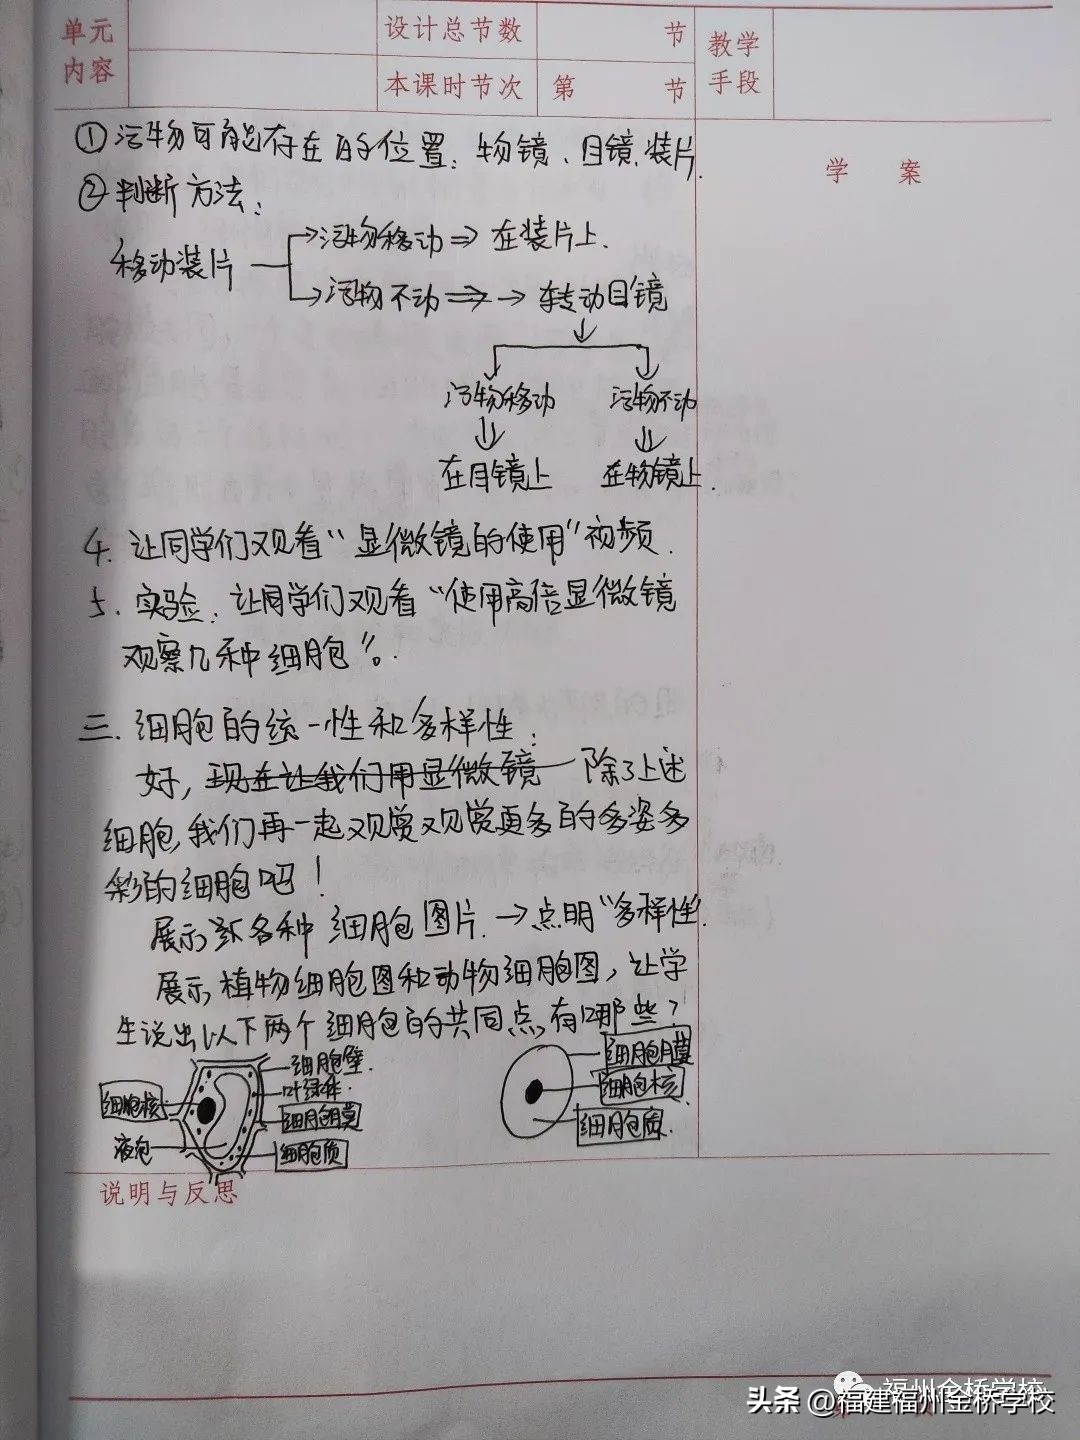 单元
内容
设计总节数
节
本课时节次
第 节
教学
手段
学 案
①污物可能存在的位置：物镜、目镜、装片.
②判断方法：
移动装片
污物移动⇒在装片上.
污物不动⇒→转动目镜
污物移动 污物不动
在目镜上 在物镜上.
4. 让同学们观看“显微镜的使用”视频.
5. 实验：让同学们观看“使用高倍显微镜
观察几种细胞”。
三. 细胞的统一性和多样性：
好，现在让我们用显微镜 除了上述
细胞，我们再一起观赏观赏更多的多姿多
彩的细胞吧！
展示各种细胞图片.→点明“多样性”.
展示植物细胞图和动物细胞图，让学
生说出以下两个细胞的共同点有哪些？
细胞壁.
叶绿体.
细胞核
细胞膜
液泡
细胞质
细胞膜
细胞核
细胞质.
说明与反思
福州金桥学校
头条 @福建福州金桥学校